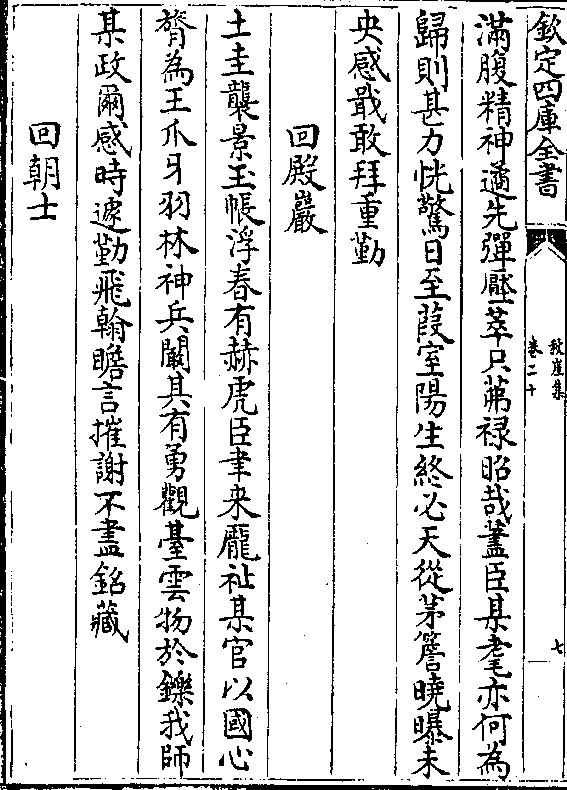 欽定四庫全書
敉崖集
卷二十
七
滿腹精神遹先彈壓萃只茀禄昭哉藎臣某耄亦何為
歸則甚力恍驚日至葭室陽生終必天從茅簷曉曝未
央感戢敢拜重勤
回殿巖
土圭襲景玉帳浮春有赫虎臣聿来龎祉某官以國心
膂為王爪牙羽林神兵闞其有勇觀臺雲物於鑠我師
某政爾感時遽勤飛翰瞻言摧謝不盡銘藏
回朝士